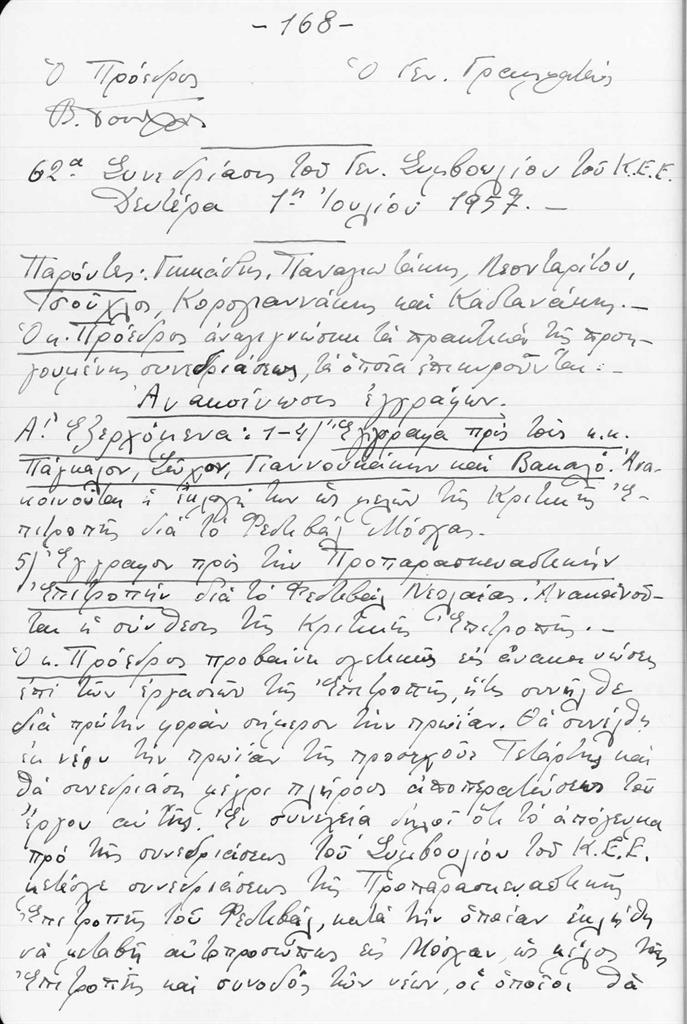 - 168 -
Ὁ Πρόεδρος Ὁ Γεν. Γραμματεύς
62α Συνεδρίασις τοῦ Γεν. Συμβουλίου τοῦ Κ.Ε.Ε.
Δευτέρα 1η Ἰουλίου 1957. —
Παρόντες: Γκικάδης, Παναγιωτάκης, Λεονταρίτου,
Τσοῦχλος, Κορογιαννάκης καὶ Καστανάκης. —
Ὁ κ. Πρόεδρος ἀναγιγνώσκει τὰ πρακτικὰ τῆς προη-
γουμένης συνεδριάσεως, τὰ ὁποῖα ἐπικυροῦνται: —
Ἀνακοίνωσις ἐγγράφων.
Α!) Ἐξερχόμενα: 1-4/ Ἔγγραφα πρὸς τοὺς κ.κ.
Πάγκαλον, Σῶχον, Γιαννουκάκην καὶ Βακαλό. Ἀνα-
κοινοῦται ἡ ἐκλογή των ὡς μελῶν τῆς Κριτικῆς Ἐ-
πιτροπῆς διὰ τὸ Φεστιβὰλ Μόσχας.
5/ Ἔγγραφον πρὸς τὴν Προπαρασκευαστικήν
Ἐπιτροπὴν διὰ τὸ Φεστιβὰλ Νεολαίας. Ἀνακοινοῦ-
ται ἡ σύνθεσις τῆς Κριτικῆς Ἐπιτροπῆς. —
Ὁ κ. Πρόεδρος προβαίνει σχετικῶς εἰς ἀνακοινώσεις
ἐπὶ τῶν ἐργασιῶν τῆς Ἐπιτροπῆς, ἥτις συνῆλθε
διὰ πρώτην φορὰν σήμερον τὴν πρωΐαν. Θὰ συνέλθῃ
ἐκ νέου τὴν πρωΐαν τῆς προσεχοῦς Τετάρτης καὶ
θὰ συνεδριάσῃ μέχρι πλήρους ἀποπερατώσεως τοῦ
ἔργου αὐτῆς. Ἐν συνεχείᾳ δηλοῖ ὅτι τὸ ἀπόγευμα
πρὸ τῆς συνεδριάσεως τοῦ Συμβουλίου τοῦ Κ.Ε.Ε.
μετέσχε συνεδριάσεως τῆς Προπαρασκευαστικῆς
Ἐπιτροπῆς τοῦ Φεστιβάλ, κατὰ τὴν ὁποίαν ἐκλήθη
νὰ μεταβῇ αὐτοπροσώπως εἰς Μόσχαν, ὡς μέλος τῆς
Ἐπιτροπῆς καὶ συνοδὸς τῶν νέων, οἱ ὁποῖοι θὰ